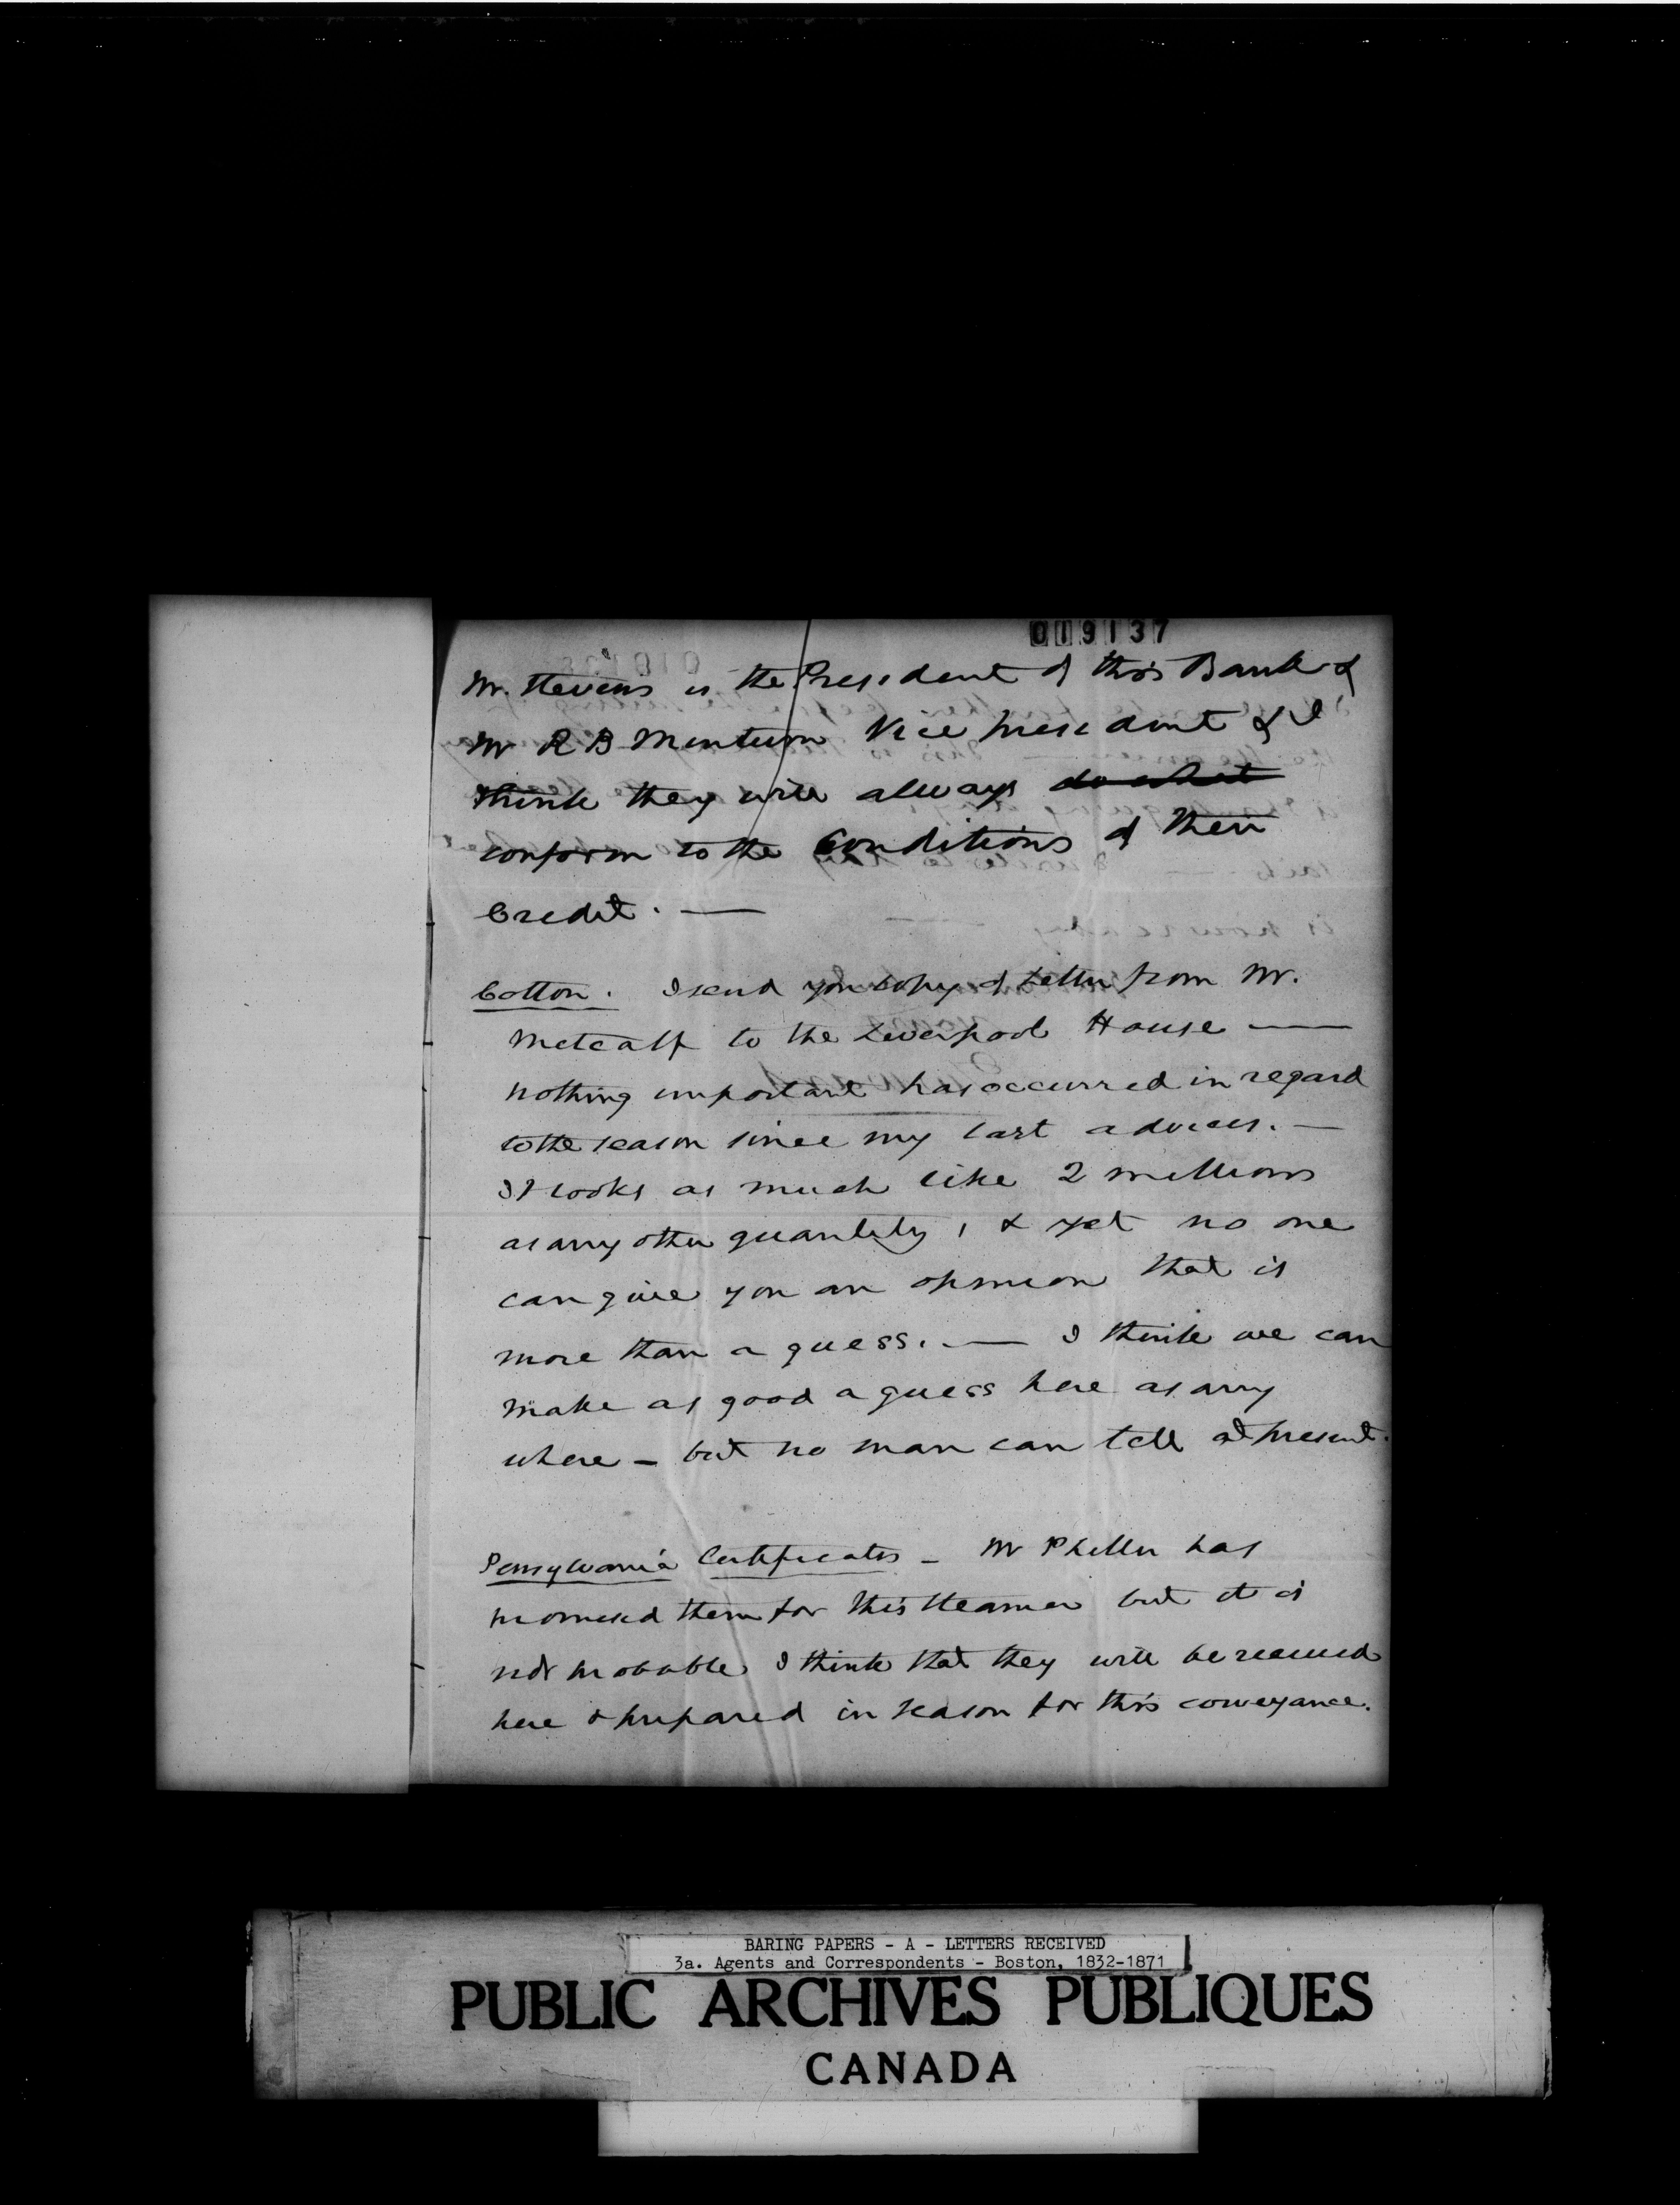 019137
Mr. Stevens is the President of this Bank &
Mr R B Minturn Vice president & I
think they will always ~~do what~~
conform to the Conditions of their
Credit. —
Cotton. I send you copy of Letter from Mr.
Metcalf to the Liverpool House —
nothing important has occurred in regard
to the season since my last advices. —
It looks as much like 2 millions
as any other quantity, & yet no one
can give you an opinion that is
more than a guess. — I think we can
make as good a guess here as any
where – but no man can tell at present.
Pensylvania Certificates – Mr Phellu has
promised them for this steamer but it is
not probable I think that they will be received
here & prepared in season for this conveyance.
BARING PAPERS - A - LETTERS RECEIVED
3a. Agents and Correspondents - Boston, 1832-1871
PUBLIC ARCHIVES PUBLIQUES
CANADA